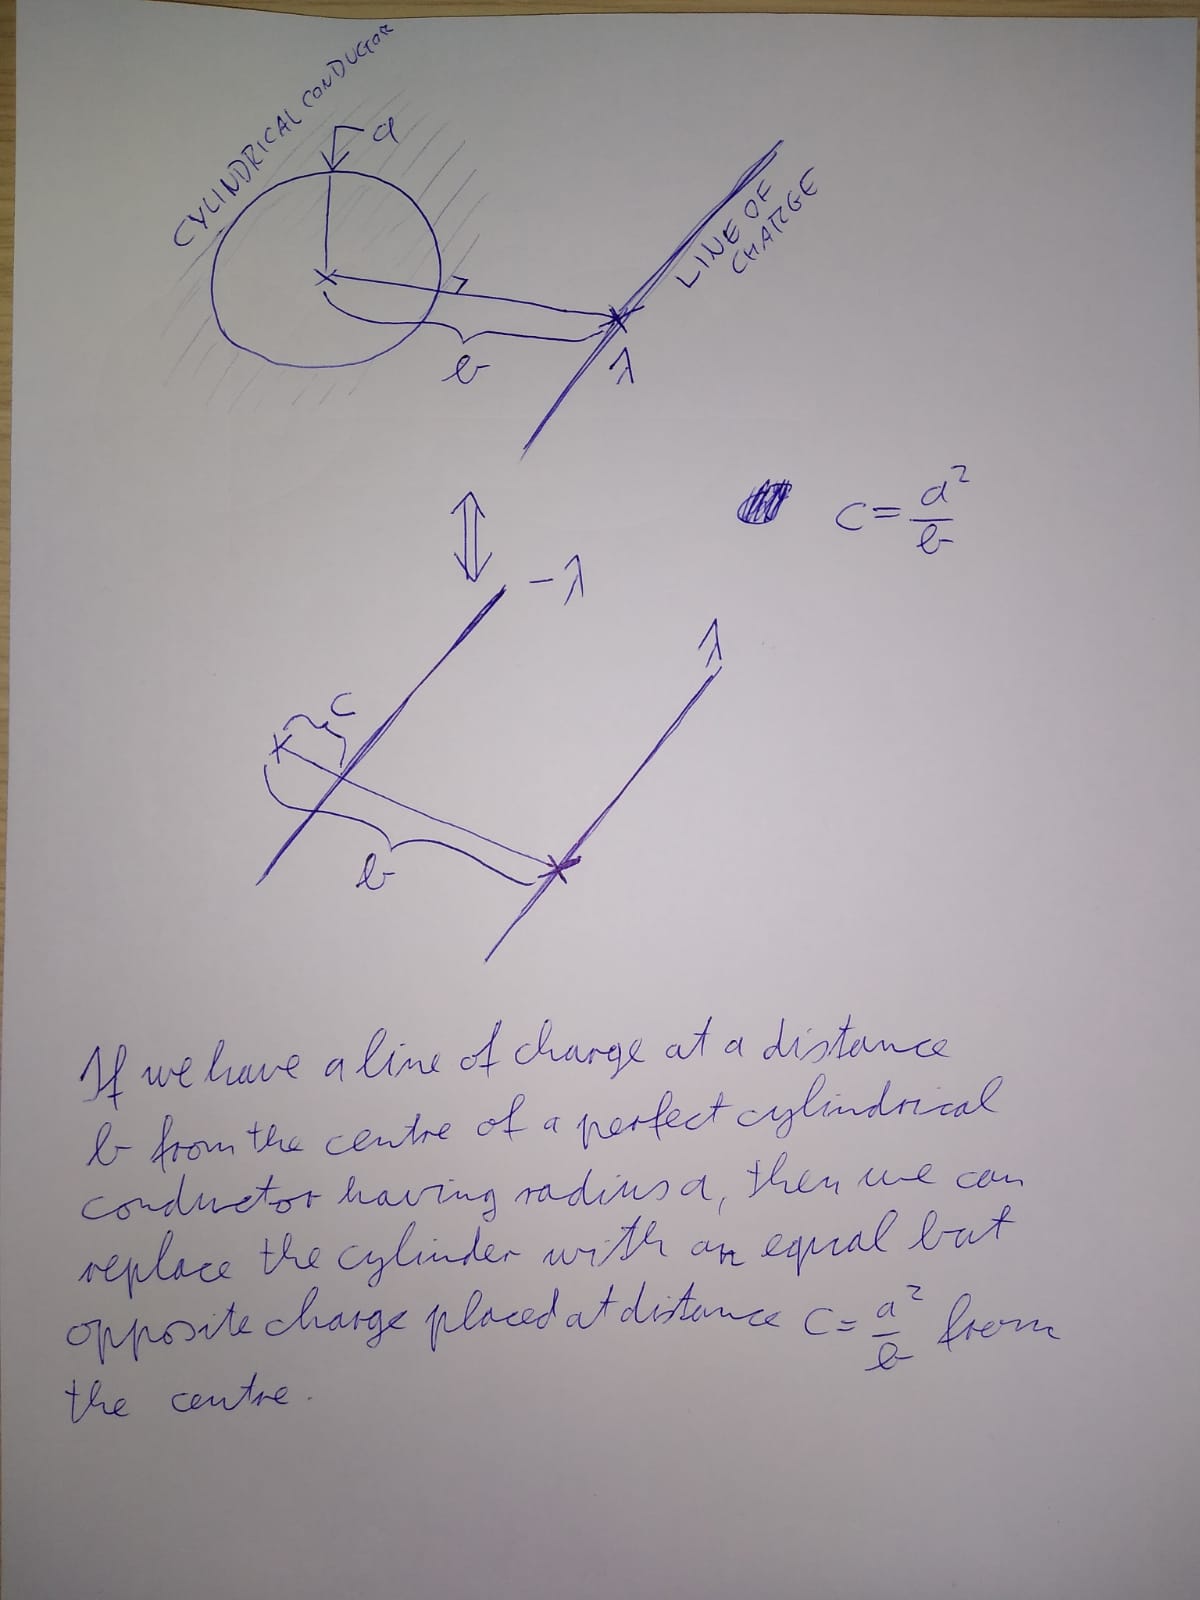 CYLINDRICAL CONDUCTOR
a
LINE OF
CHARGE
b
λ
c = a²/b
-λ
λ
c
b
If we have a line of charge at a distance
b from the centre of a perfect cylindrical
conductor having radius a, then we can
replace the cylinder with an equal but
opposite charge placed at distance c = a²/b from
the centre.